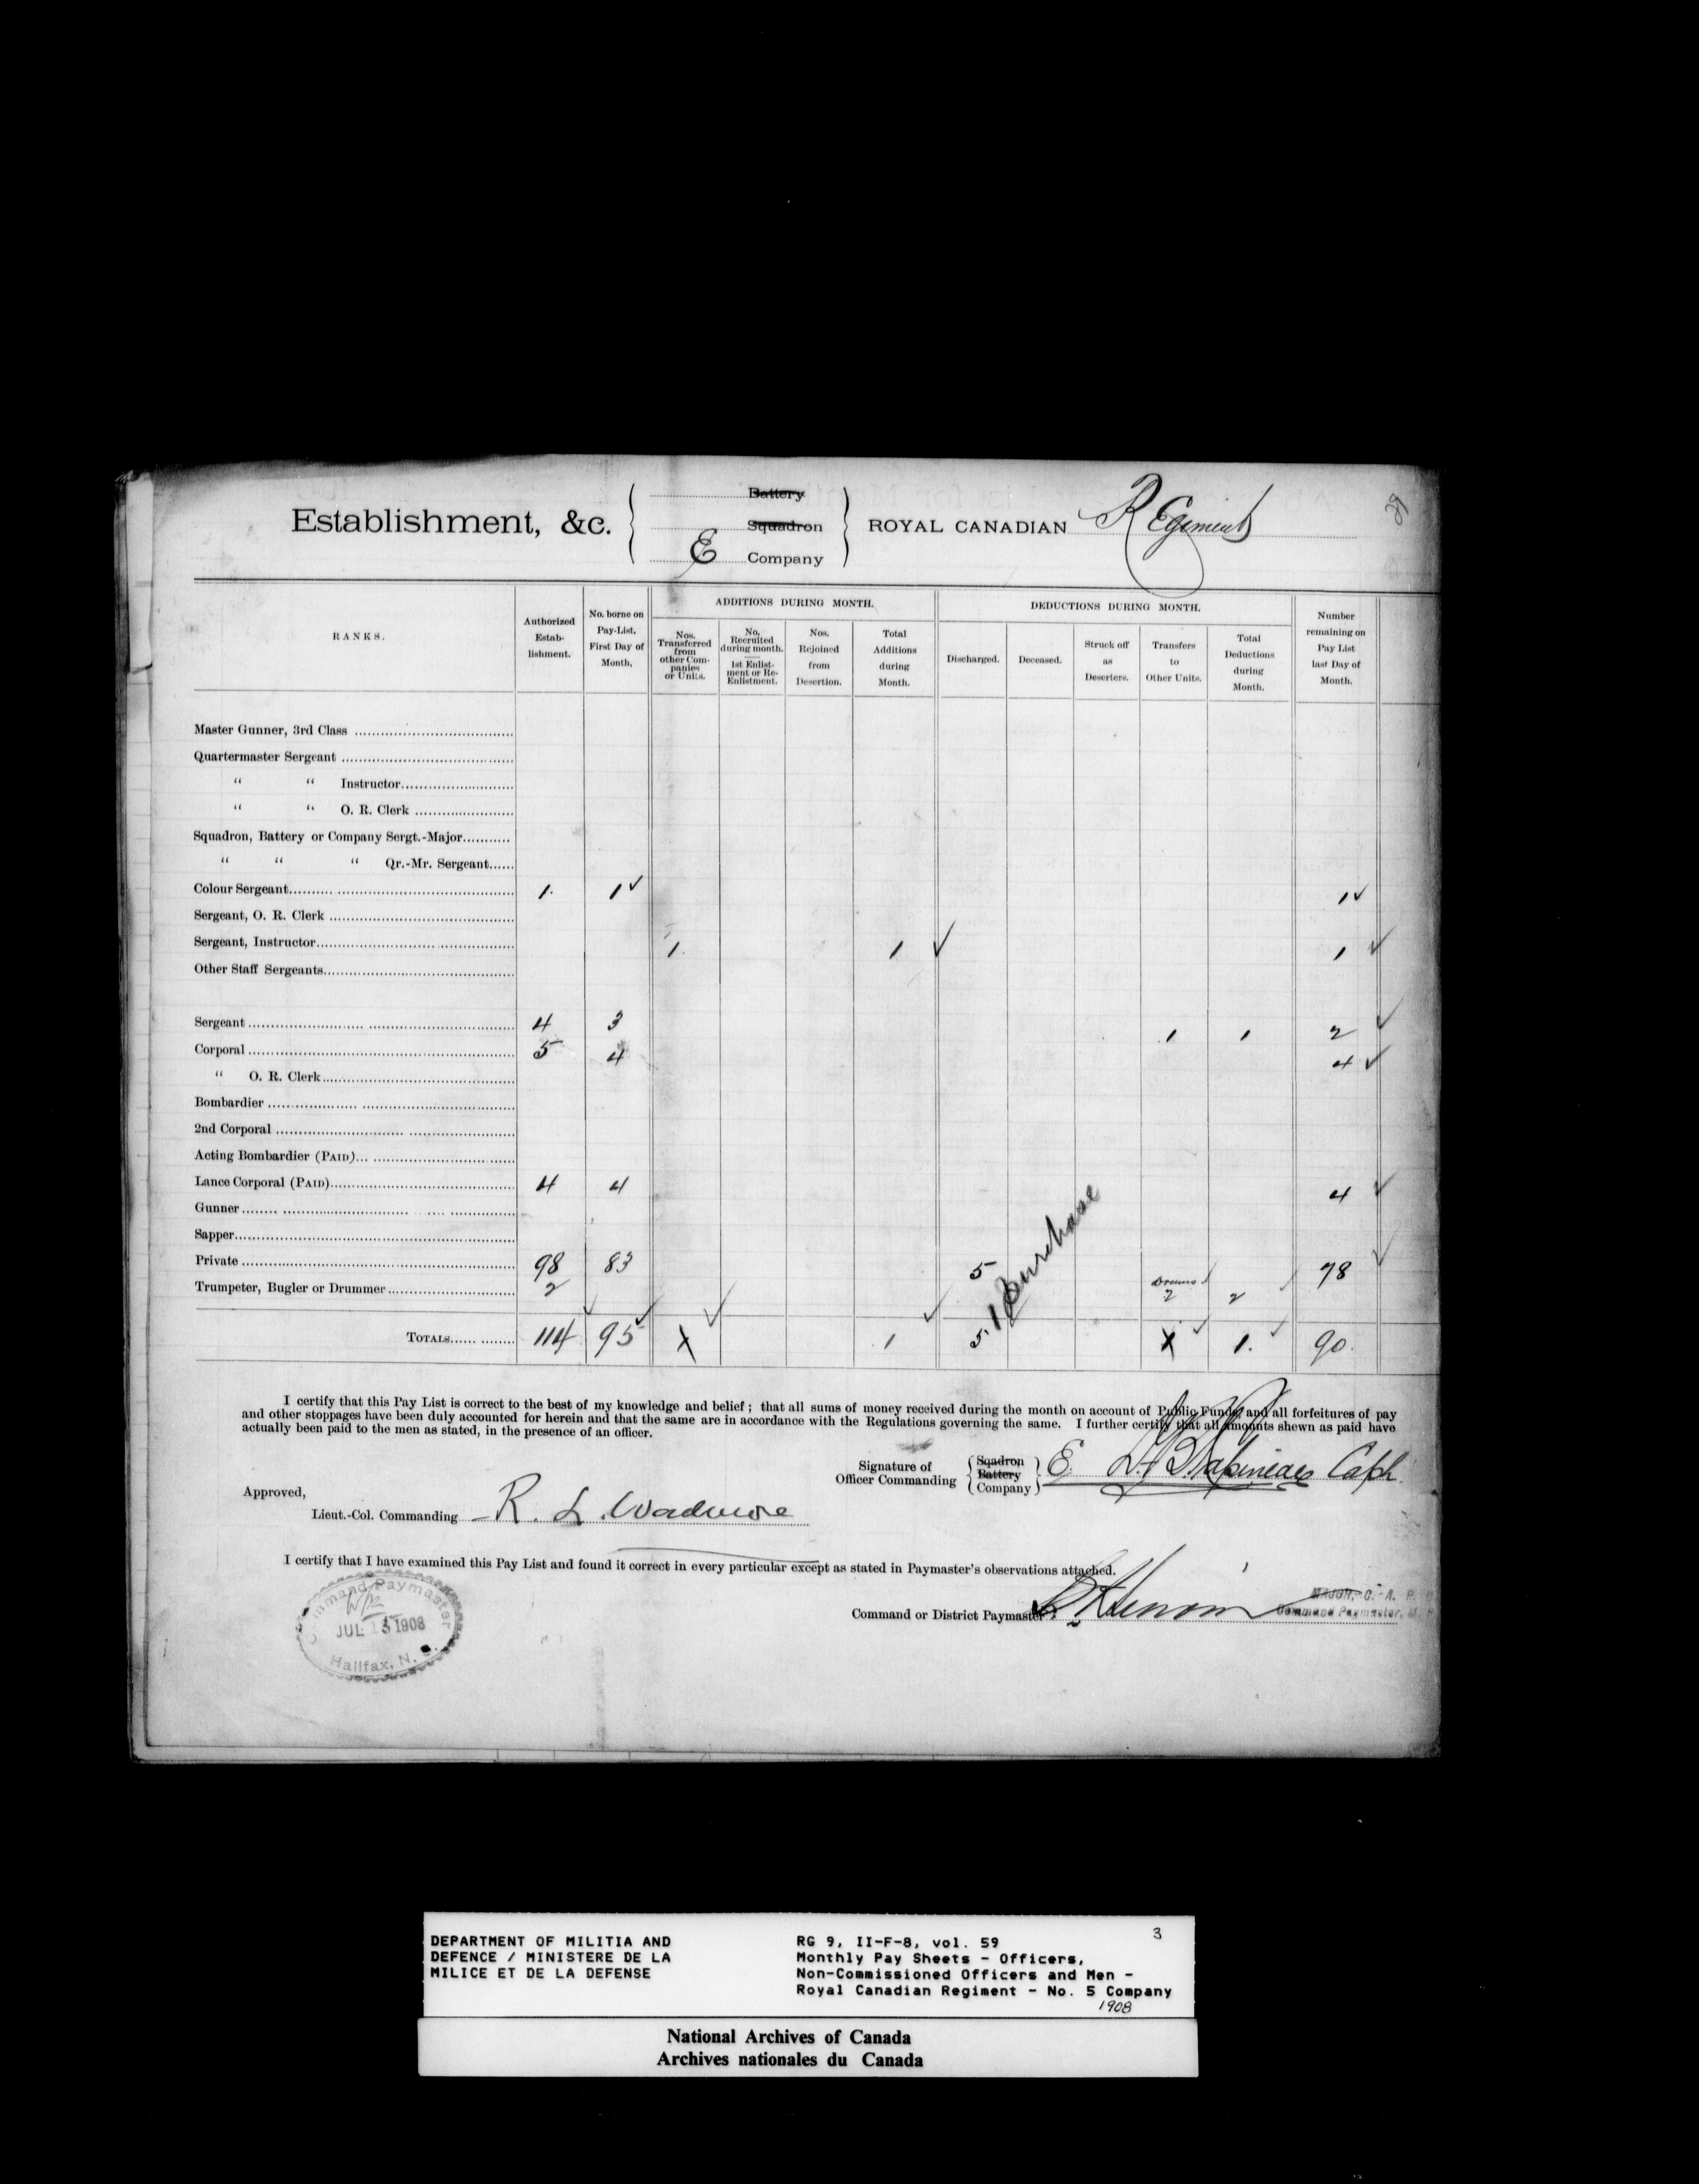 Establishment, &c. { Battery Squadron E Company } ROYAL CANADIAN Regiment
RANKS.
Authorized Estab-lishment.
No. borne on Pay-List, First Day of Month.
ADDITIONS DURING MONTH.
Nos. Transferred from other Com-panies or Units.
No. Recruited during month. 1st Enlist-ment or Re-Enlistment.
Nos. Rejoined from Desertion.
Total Additions during Month.
DEDUCTIONS DURING MONTH.
Discharged.
Deceased.
Struck off as Deserters.
Transfers to Other Units.
Total Deductions during Month.
Number remaining on Pay List last Day of Month.
Master Gunner, 3rd Class
Quartermaster Sergeant
“ “ Instructor
“ “ O. R. Clerk
Squadron, Battery or Company Sergt.-Major
“ “ “ Qr.-Mr. Sergeant
Colour Sergeant 1. 1 ✓ 1 ✓
Sergeant, O. R. Clerk
Sergeant, Instructor 1. 1 ✓ 1 ✓
Other Staff Sergeants
Sergeant 4 3 1 1 2 ✓
Corporal 5 4 4 ✓
“ O. R. Clerk
Bombardier
2nd Corporal
Acting Bombardier (PAID)
Lance Corporal (PAID) 4 4 4 ✓
Gunner
Sapper
Private 98 83 5 by Purchase 78 ✓
Trumpeter, Bugler or Drummer 2 Drums 2 2
TOTALS 114 95 X 1 5. X 1. 90.
I certify that this Pay List is correct to the best of my knowledge and belief; that all sums of money received during the month on account of Public Funds, and all forfeitures of pay
and other stoppages have been duly accounted for herein and that the same are in accordance with the Regulations governing the same. I further certify that all amounts shewn as paid have
actually been paid to the men as stated, in the presence of an officer.
Signature of Officer Commanding { Sqadron Battery Company } E Papineau Capt.
Approved,
Lieut.-Col. Commanding R. L. Wadmore
I certify that I have examined this Pay List and found it correct in every particular except as stated in Paymaster's observations attached.
Command or District Paymaster
MAJOR, C. A. P.
Command Paymaster, M.
Command Paymaster
JUL 15 1908
Halifax, N.
DEPARTMENT OF MILITIA AND
DEFENCE / MINISTERE DE LA
MILICE ET DE LA DEFENSE
3
RG 9, II-F-8, vol. 59
Monthly Pay Sheets - Officers,
Non-Commissioned Officers and Men -
Royal Canadian Regiment - No. 5 Company
1908
National Archives of Canada
Archives nationales du Canada